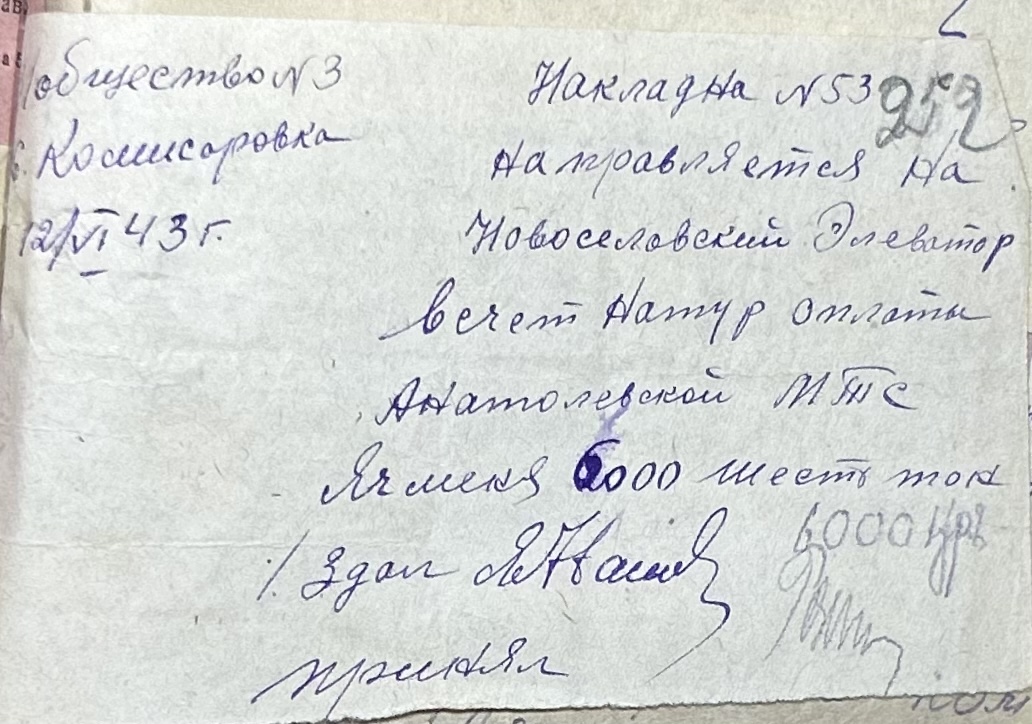 общество N 3
с. Комисаровка
12/VI 43 г.
Накладна N 53
252
Направляется на
Новоселовский Элеватор
всчет Натур оплаты
Анатолевской МТС
Ячменя 6000 шесть тон
6000 кгр
1. Здал
принял